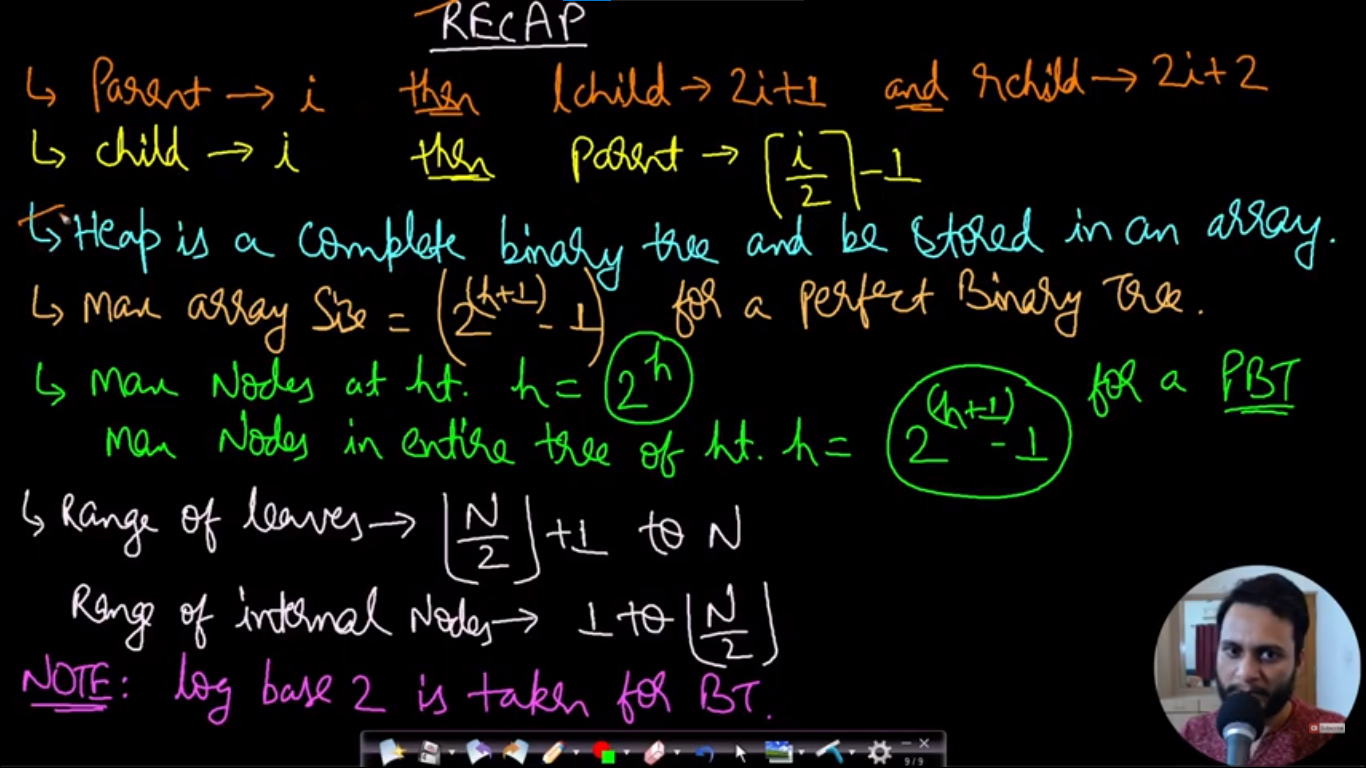 RECAP
↳ Parent → i then lchild → 2i+1 and rchild → 2i+2
↳ child → i then parent → ⌈i/2⌉ - 1
↳ Heap is a complete binary tree and be stored in an array.
↳ Max array Size = (2^(h+1) - 1) for a perfect Binary Tree.
↳ Max Nodes at ht. h = 2^h
Max Nodes in entire tree of ht. h = 2^(h+1) - 1 for a PBT
↳ Range of leaves → ⌊N/2⌋ + 1 to N
Range of internal Nodes → 1 to ⌊N/2⌋
NOTE: log base 2 is taken for BT.
9/9
Subscribe